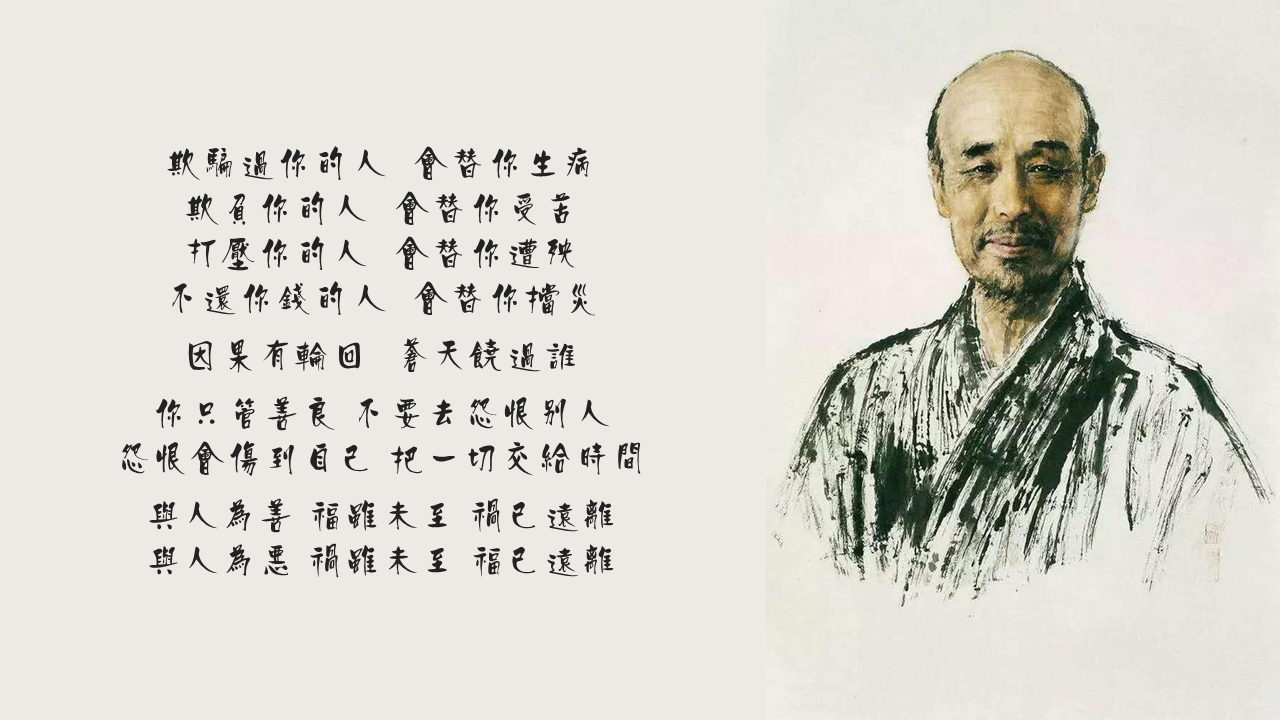 欺騙過你的人 會替你生病
欺負你的人 會替你受苦
打壓你的人 會替你遭殃
不還你錢的人 會替你擋災
因果有輪回 蒼天饒過誰
你只管善良 不要去怨恨別人
怨恨會傷到自己 把一切交給時間
與人為善 福雖未至 禍已遠離
與人為惡 禍雖未至 福已遠離